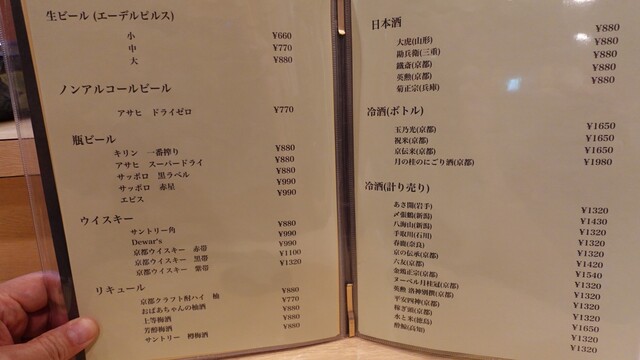 生ビール (エーデルピルス)
小 ¥660
中 ¥770
大 ¥880
ノンアルコールビール
アサヒ ドライゼロ ¥770
瓶ビール
キリン 一番搾り ¥880
アサヒ スーパードライ ¥880
サッポロ 黒ラベル ¥880
サッポロ 赤星 ¥990
エビス ¥990
ウイスキー
サントリー角 ¥880
Dewar's ¥990
京都ウイスキー 赤帯 ¥990
京都ウイスキー 黒帯 ¥1100
京都ウイスキー 紫帯 ¥1320
リキュール
京都クラフト酎ハイ 柚 ¥880
おばあちゃんの柚酒 ¥770
上等梅酒 ¥880
芳醇梅酒 ¥880
サントリー 樽梅酒 ¥880
日本酒
大虎(山形) ¥880
勘兵衛(三重) ¥880
鐵斎(京都) ¥880
英勲(京都) ¥880
菊正宗(兵庫) ¥880
冷酒(ボトル)
玉乃光(京都) ¥1650
祝米(京都) ¥1650
京伝来(京都) ¥1650
月の桂のにごり酒(京都) ¥1980
冷酒(計り売り)
あさ開(岩手) ¥1320
〆張鶴(新潟) ¥1430
八海山(新潟) ¥1320
手取川(石川) ¥1320
春鹿(奈良) ¥1320
京の伝承(京都) ¥1420
六友(京都) ¥1540
金鵄正宗(京都) ¥1320
ヌーベル月桂冠(京都) ¥1320
英勲 (京都) ¥1320
平安四神(京都) ¥1320
稼ぎ頭(京都) ¥1650
水と米(徳島) ¥1320
酔鯨(高知) ¥1320